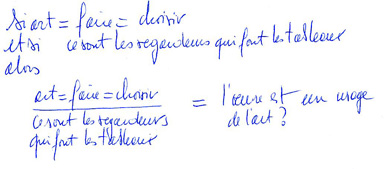 Si art = faire = choisir
et si ce sont les regardeurs qui font les tableaux
alors
art = faire = choisir
ce sont les regardeurs
qui font les tableaux
= l'œuvre est un usage
de l'art ?